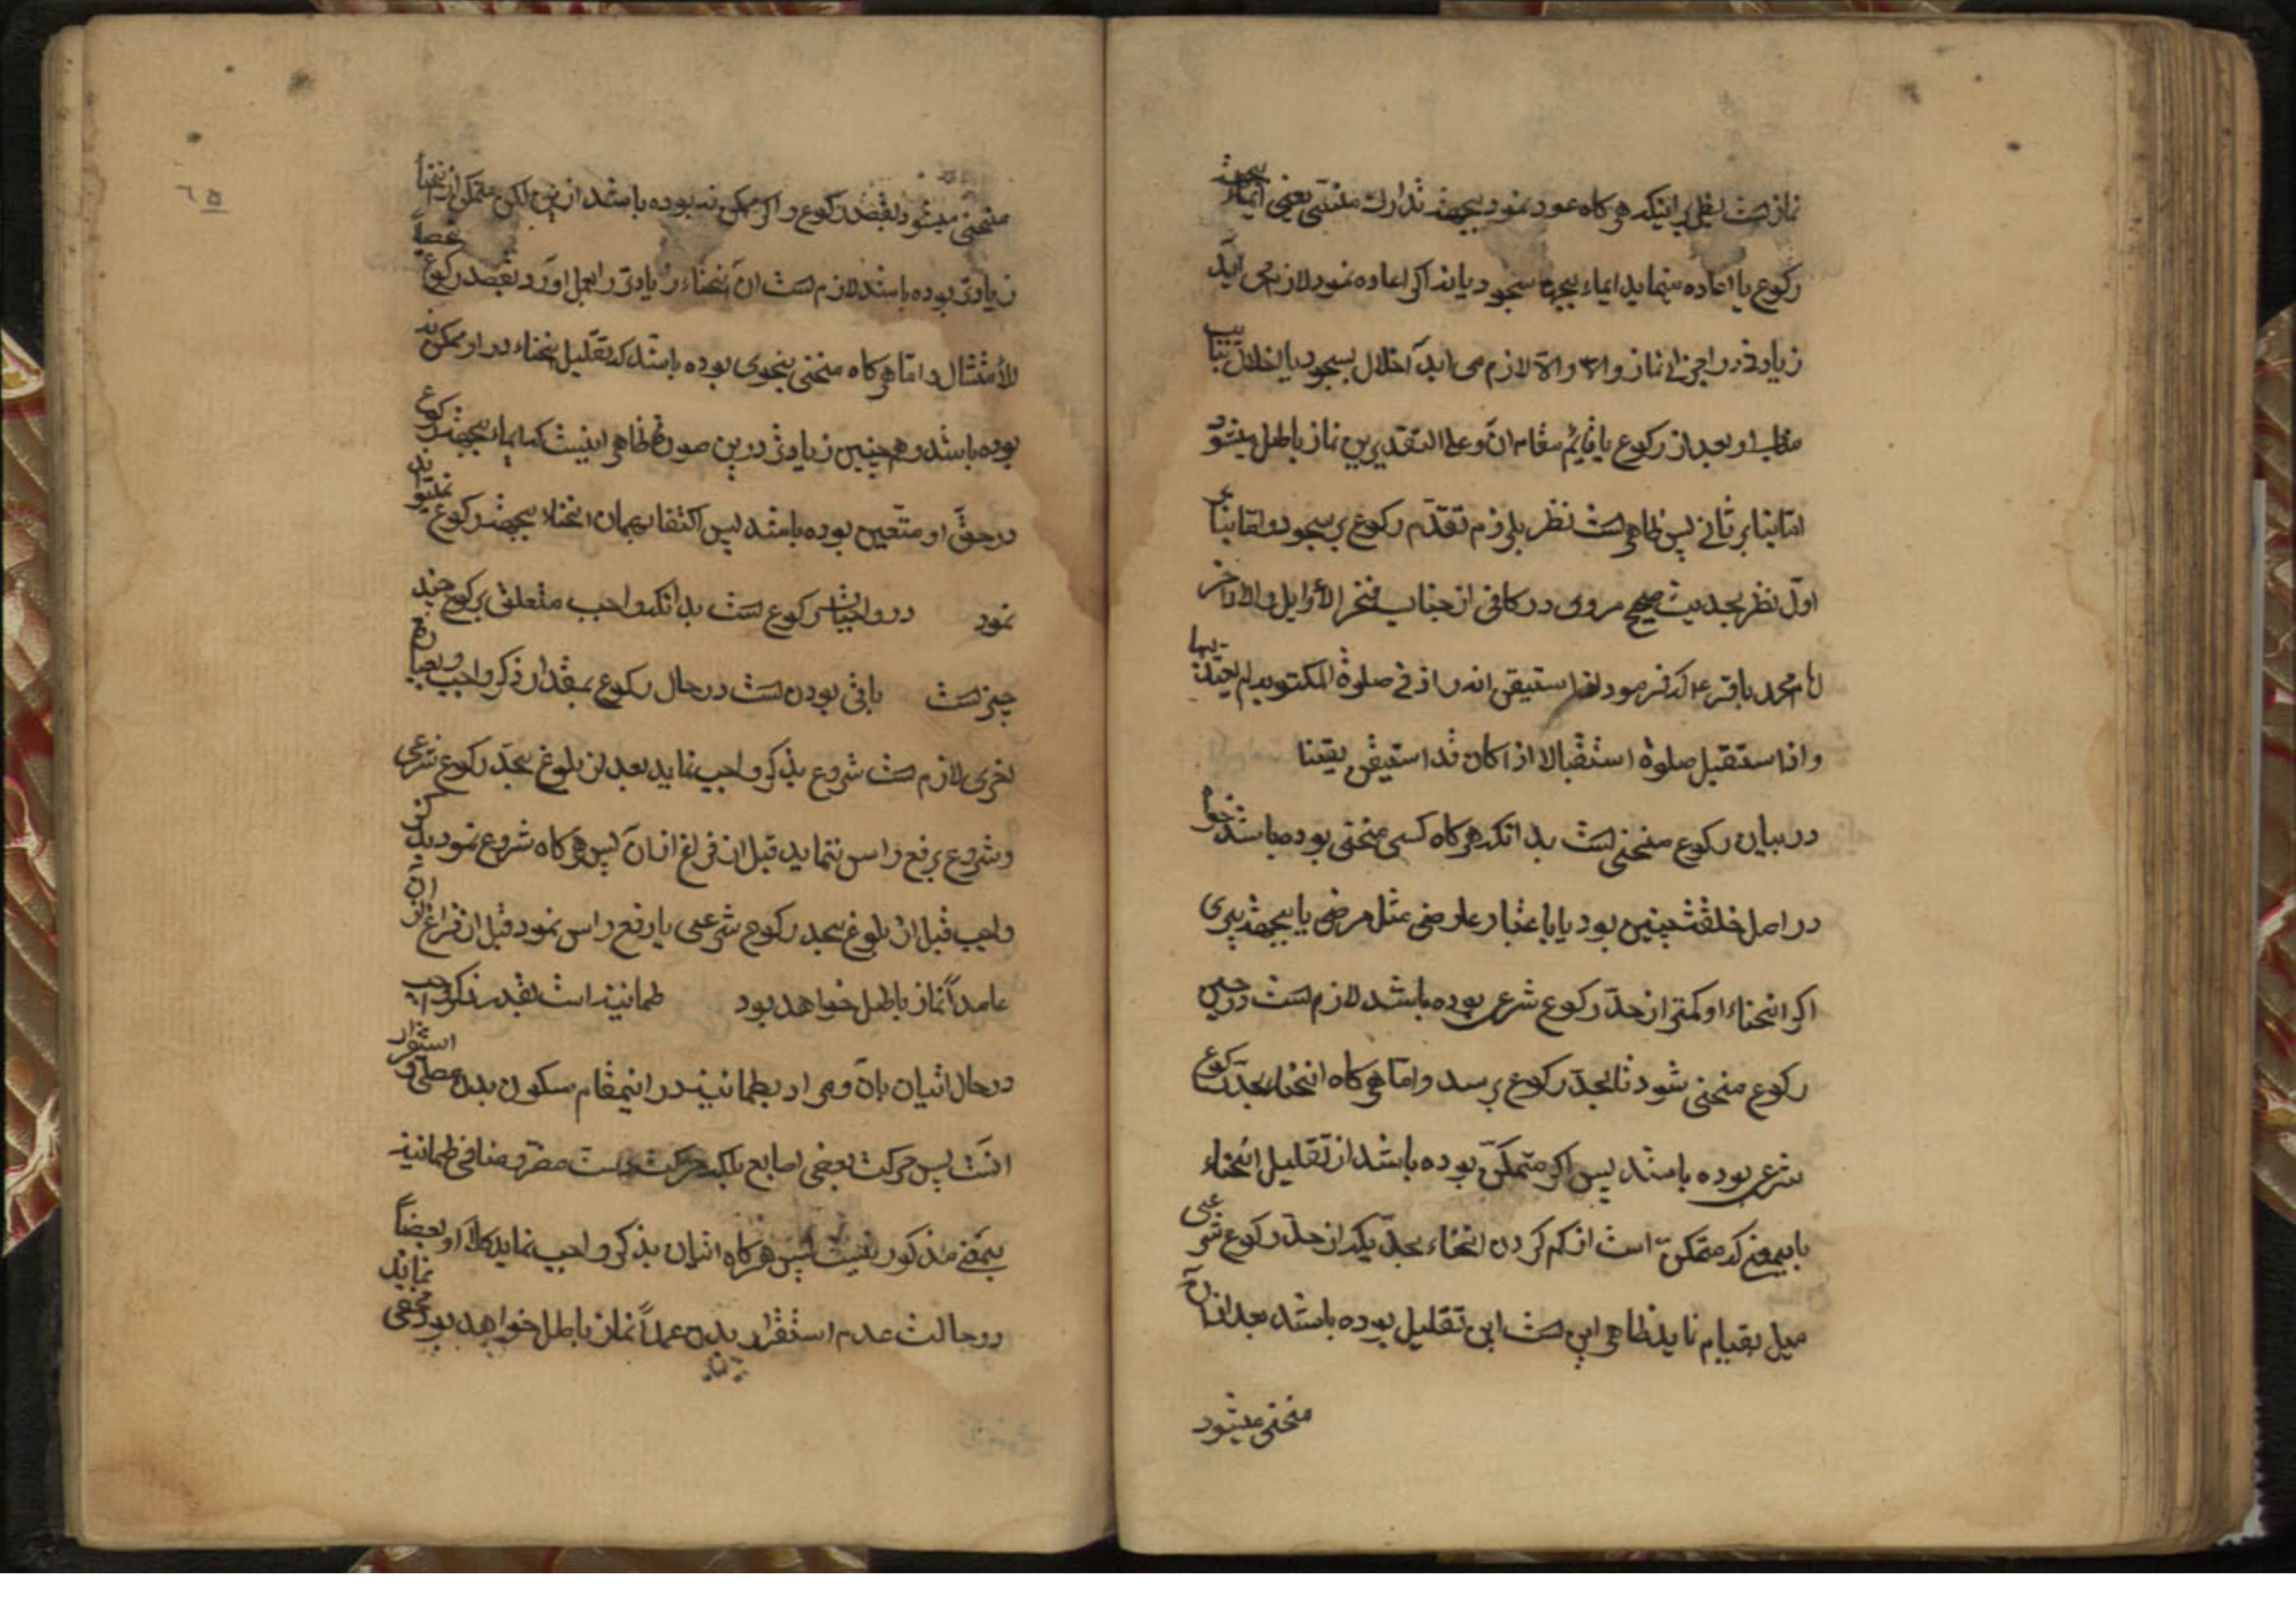 نماز است بعلت اینکه هرکاه عود نمود بجهت تدارك منسی یعنی ایماء بجهت
رکوع یا اعاده مینماید ایماء بجهة سجود یا نه اکر اعاده نمود لازم می آید
زیادتی در اجزای نماز والا لازم می آید اخلال بسجود یا اخلال بترتیب
او بعد از رکوع یا قایم مقام ان و علی التقدیرین نماز باطل میشود
اما بنابر ثانی پس ظاهر است نظر بلزوم تقدّم رکوع بر سجود و اما بنابر
اوّل نظر بحدیث صحیح مروی در کافی از جناب فخر الأوایل والاواخر
امام محمد باقر ع که فرمود اذا استیقن انه زاد فی صلوة المکتوبه لم یعتد بها
واذا استقبل صلوة استقبالا اذا کان قد استیقن یقینا
در بیان رکوع منحنی است بدانکه هرکاه کسی منحنی بوده باشد خواه
در اصل خلقت چنین بود یا باعتبار عارضی مثل مرضی یا بجهت پیری
اکر انحناء او کمتر از حدّ رکوع شرعی بوده باشد لازم است در حین
رکوع منحنی شود تا بحدّ رکوع برسد و اما هرکاه انحناء بحدّ رکوع
شرعی بوده باشد پس اکر متمکّن بوده باشد از تقلیل انحناء
باینمعنی که متمکّن است از کم کردن انحناء بحدّیکه از حدّ رکوع شرعی
میل بقیام نماید ظاهر این است این تقلیل بوده باشد بعد از آن
منحنی میشود
٦٥
منحنی میشود بقصد رکوع و اکر ممکن نبوده باشد ازین لکن متمکن از انحناء
زیادتی بوده باشد لازم است ان انحناء زیادتی را بعمل آورد بقصد رکوع تحصیلاً
للأمتثال و اما هرکاه منحنی بنحوی بوده باشد که تقلیل انحناء در او ممکن نه
بوده باشد و همچنین زیادتی درین صورة ظاهر اینست که ایماء بجهت رکوع
در حقّ او متعین بوده باشد پس اکتفا بهمان انحناء بجهت رکوع نمیتواند
نمود در واجبات رکوع است بدانکه واجب متعلق برکوع چند
چیز است باقی بودن است در حال رکوع بمقدار ذکر واجب و بعبارة
اخری لازم است شروع بذکر واجب نماید بعد از بلوغ بحدّ رکوع شرعی
و شروع برفع راس ننماید قبل از فراغ از ان پس هرکاه شروع نمود بذکر
واجب قبل از بلوغ بحد رکوع شرعی یا رفع راس نمود قبل از فراغ از ان
عامداً نماز باطل خواهد بود طمانینه است بقدر ذکر واجب
در حال اتیان بآن و مراد بطمانینه در اینمقام سکون بدن مصلّی و استقرار
انست پس حرکت بعضی اصابع بلکه حرکت دست مضر و منافی طمانینه
بمعنی مذکور نیست پس هرکاه اتیان بذکر واجب نماید کلاً او بعضاً
در حالت عدم استقرار بدن عمداً نماز باطل خواهد بود مخفی نماند